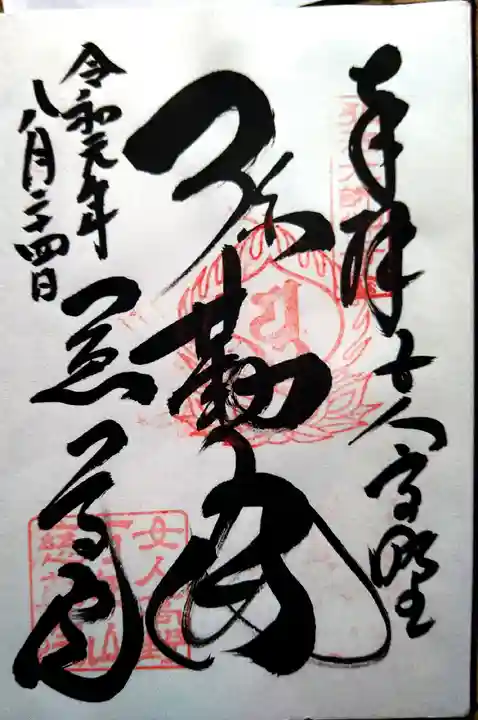 奉拝 女人高野
弥勒佛
慈尊院
令和元年
八月二十四日
女人高野